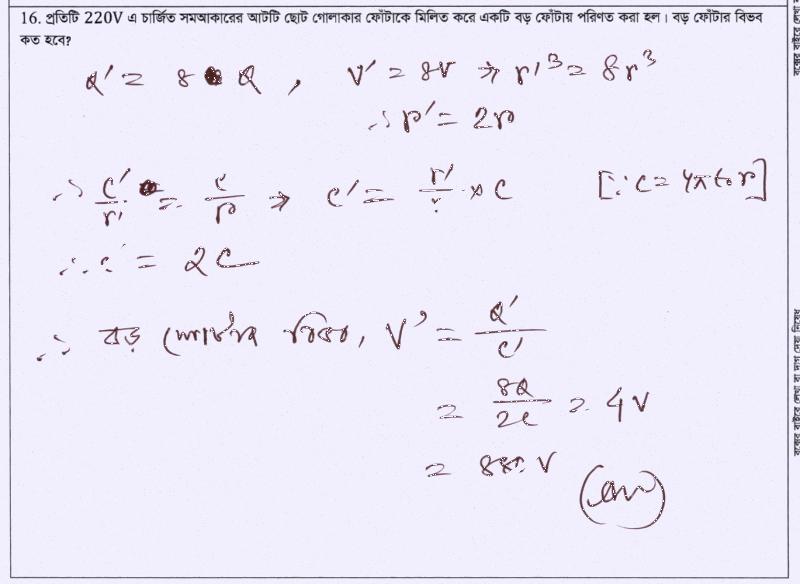 16. প্রতিটি 220V এ চার্জিত সমআকারের আটটি ছোট গোলাকার ফোঁটাকে মিলিত করে একটি বড় ফোঁটায় পরিণত করা হল। বড় ফোঁটার বিভব
কত হবে?
Q' = 8 Q , V' = 8V ⇒ r'³ = 8r³
∴ r' = 2r
∴ C'/r' = C/r ⇒ C' = r'/r × C [∵ C = 4π ε₀ r]
∴ C' = 2C
∴ বড় ফোঁটার বিভব, V' = Q'/C'
= 8Q/2C = 4V
= 880 V (Ans)